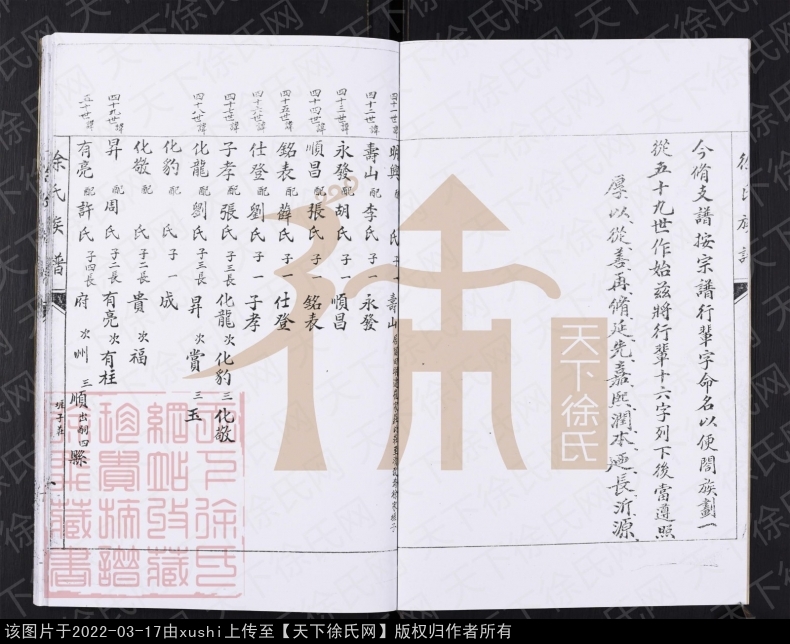 徐氏族譜
今脩支譜按宗譜行輩字命名以便閤族劃一
從五十九世作始茲將行輩十六字列下後當遵照
厚以從善再脩延先嘉熙潤本延長沂源
四十一世諱 明興 配 氏 子一 壽山
四十二世諱 壽山 配 李氏 子一 永發
四十三世諱 永發 配 胡氏 子一 順昌
四十四世諱 順昌 配 張氏 子一 銘表
四十五世諱 銘表 配 薛氏 子一 仕登
四十六世諱 仕登 配 劉氏 子一 子孝
四十七世諱 子孝 配 張氏 子三 長 化龍 次 化豹 三 化敬
四十八世諱 化龍 配 劉氏 子三 長 昇 次 賞 三 玉
化豹 配 氏 子一 成
化敬 配 氏 子二 長 貴 次 福
四十九世諱 昇 配 周氏 子二 長 有亮 次 有柱
五十世諱 有亮 配 許氏 子四 長 府 次 州 三 順 出嗣 四 縣
徐氏族譜
天下徐氏
天下徐氏网
该图片于2022-03-17由xushi上传至【天下徐氏网】版权归作者所有